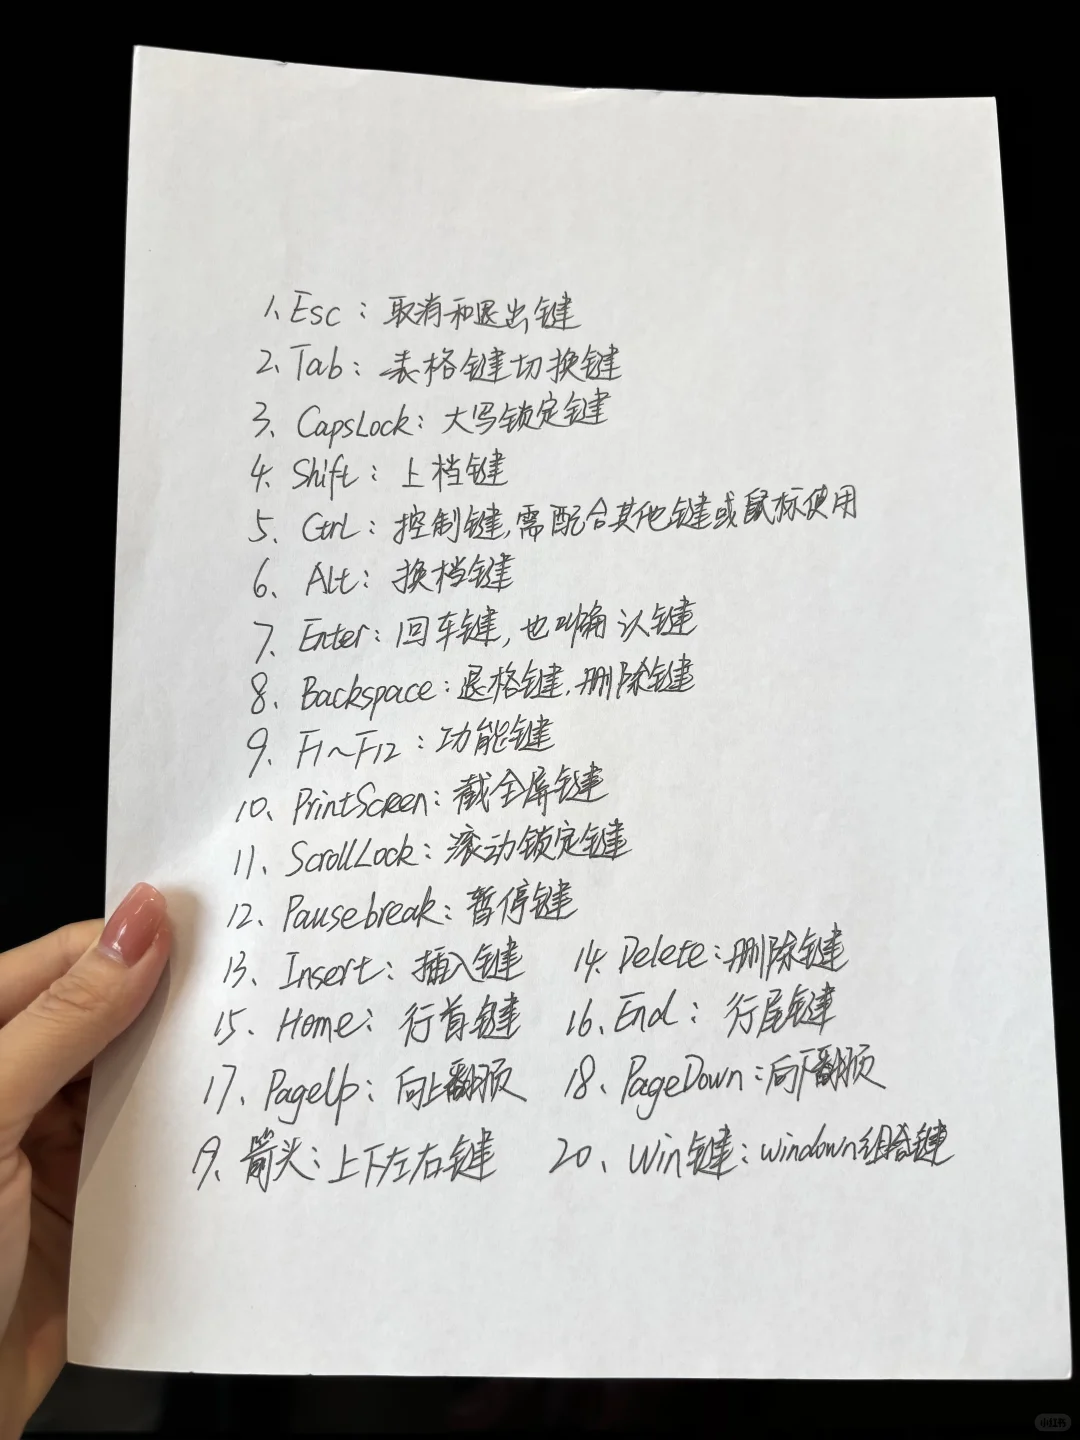 1、Esc：取消和退出键
2、Tab：表格键切换键
3、CapsLock：大写锁定键
4、Shift：上档键
5、Ctrl：控制键,需配合其他键或鼠标使用
6、Alt：换档键
7、Enter：回车键,也叫确认键
8、Backspace：退格键,删除键
9、F1~F12：功能键
10、PrintScreen：截全屏键
11、ScrollLock：滚动锁定键
12、Pausebreak：暂停键
13、Insert：插入键 14、Delete：删除键
15、Home：行首键 16、End：行尾键
17、PageUp：向上翻页 18、PageDown：向下翻页
19、箭头：上下左右键 20、Win键：windown组合键
小红书